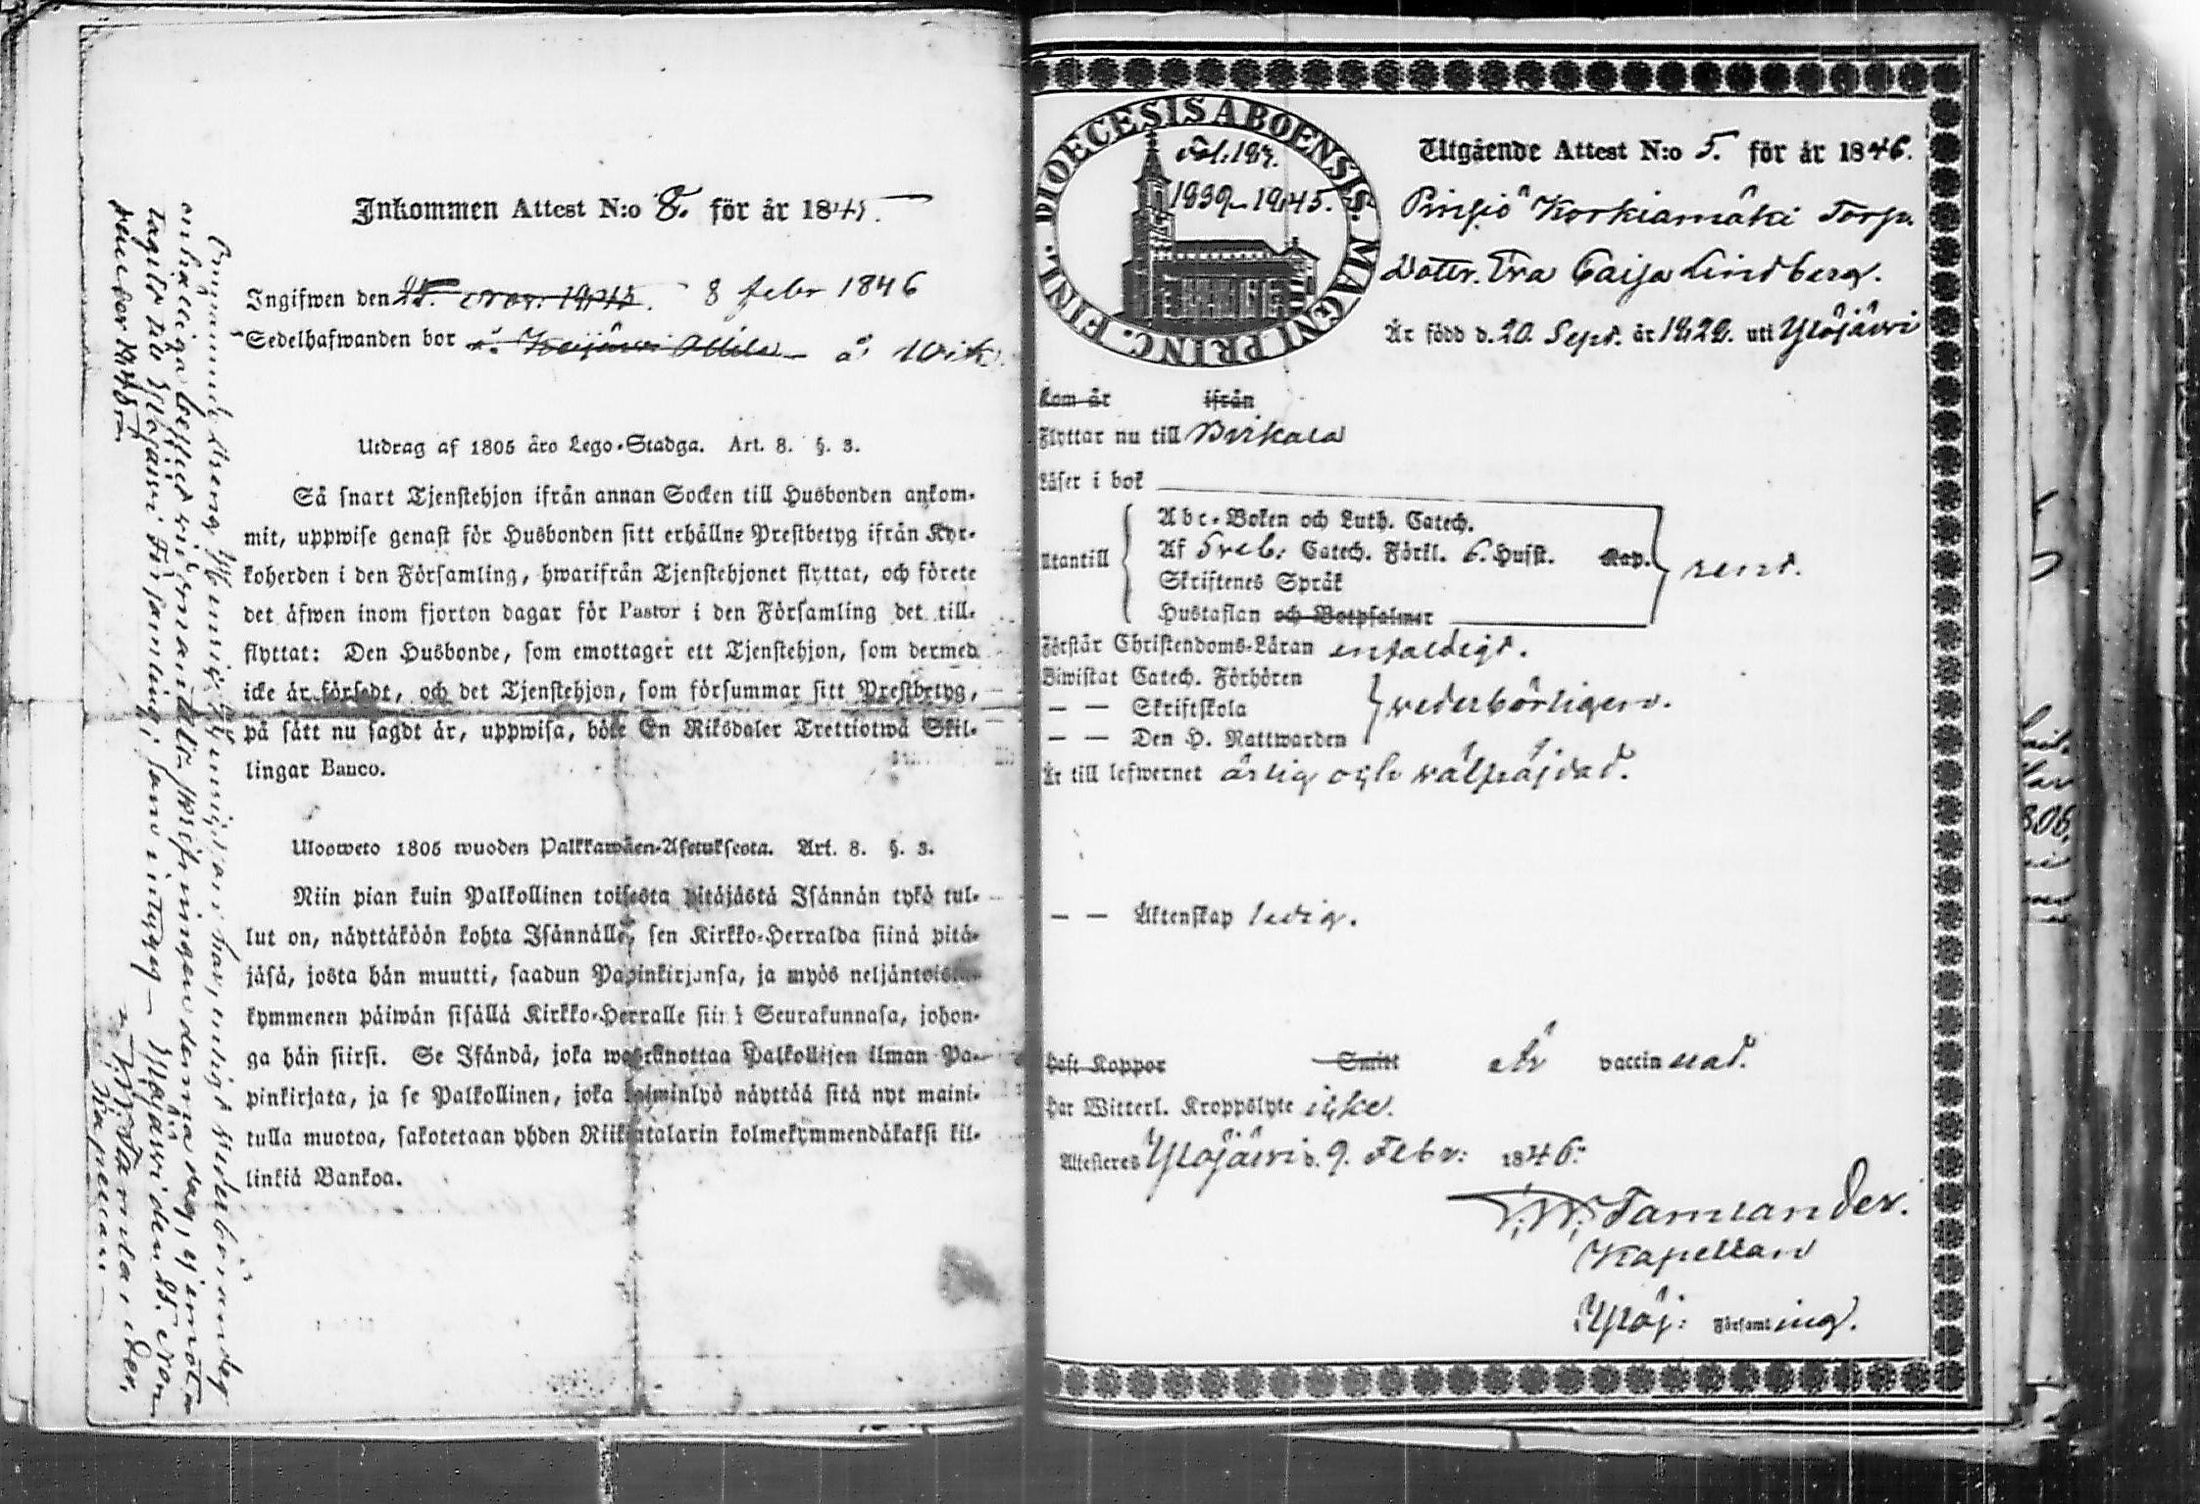 Inkommen Attest N:o 8. för år 1845.
Ingifwen den 25. Nov. 1845. 8 febr 1846
Sedelhafwanden bor å Wik
Utdrag af 1805 års Lego-Stadga. Art. 8. §. 3.
Så snart Tjenstehjon ifrån annan Socken till Husbonden ankom-
mit, uppwise genast för Husbonden sitt erhållne Prestbetyg ifrån Kyr-
koherden i den Församling, hwarifrån Tjenstehjonet flyttat, och förete
det äfwen inom fjorton dagar för Pastor i den Församling det till-
flyttat: Den Husbonde, som emottager ett Tjenstehjon, som dermed
icke är försedt, och det Tjenstehjon, som försummar sitt Prestbetyg,
på sätt nu sagdt är, uppwisa, böte En Riksdaler Trettiotwå Skil-
lingar Banco.
Ulosweto 1805 wuoden Palkkawäen-Asetuksesta. Art. 8. §. 3.
Niin pian kuin Palkollinen toisesta pitäjästä Isännän tykö tul-
lut on, näyttäköön kohta Isännälle, sen Kirkko-Herralda siinä pitä-
jäsä, josta hän muutti, saadun Papinkirjansa, ja myös neljäntoista-
kymmenen päiwän sisällä Kirkko-Herralle siinä Seurakunnasa, johon-
ga hän siirsi. Se Isändä, joka wastanottaa Palkollisen ilman Pa-
pinkirjata, ja se Palkollinen, joka laiminlyö näyttää sitä nyt maini-
tulla muotoa, sakotetaan yhden Riikintalarin kolmekymmendäkaksi kil-
linkiä Bankoa.
Ylöjärvi Församling, som intygas Ylöjärvi den 25. Nov.
Tamlander.
Kapellan
DIOECESIS ABOENSIS. MAGNI PRINC. FINL.
Fol. 187.
1839-1845.
Utgående Attest N:o 5. för år 1846.
Pinsiö Korkiamäki Torp.
Dottr. Eva Caisa Lindberg.
Är född d. 20 Sept. år 1829. uti Ylöjärvi
Kom år ifrån
Flyttar nu till Birkala
Läser i bok
Utantill
Abc-Boken och Luth. Catech.
Af Sveb: Catech. Förkl. 6. Hufst. Kap.
Skriftenes Språk
Hustaflan och Botpsalmer
rent.
Förstår Christendoms-Läran enfaldigt.
Biwistat Catech. Förhören
— — Skriftskola
— — Den H. Nattwarden
vederbörligen.
Är till lefwernet ärlig och välfräjdad.
— — Äktenskap ledig.
Haft Koppor Smitt Är vaccinerad.
Har Witterl. Kroppslyte icke.
Attesteres Ylöjärvi d. 9. Febr: 1846.
Tamlander.
Kapellan
Ylöj: Församling.